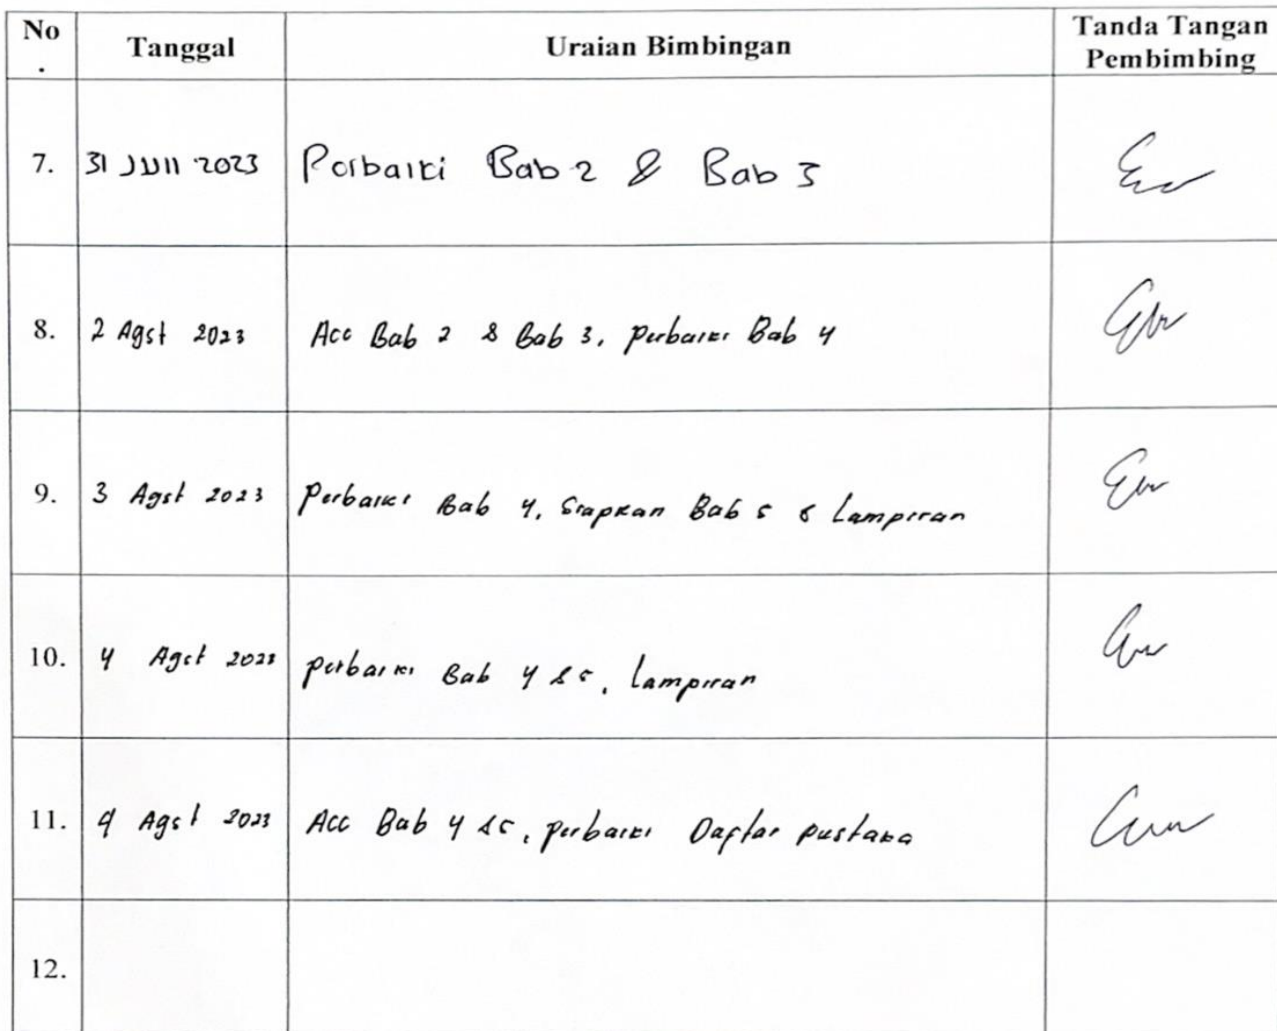 No
.
Tanggal
Uraian Bimbingan
Tanda Tangan
Pembimbing
7. 31 Juli 2023 Perbaiki Bab 2 & Bab 3
8. 2 Agst 2023 Acc Bab 2 & Bab 3, perbaiki Bab 4
9. 3 Agst 2023 Perbaiki Bab 4, Siapkan Bab 5 & Lampiran
10. 4 Agst 2023 perbaiki Bab 4 & 5, lampiran
11. Agst 2023 Acc Bab 4 & 5, perbaiki Daftar pustaka
12.